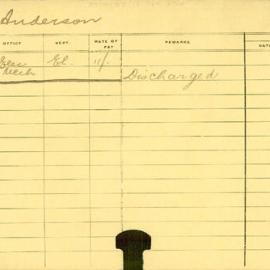 Anderson
OFFICE DEPT. RATE OF PAY REMARKS DAT
Elec El. 11/
Mech Discharged